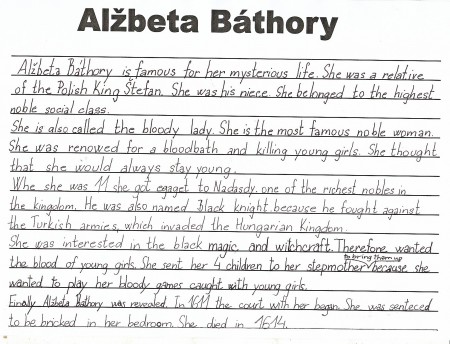 Alžbeta Báthory
Alžbeta Báthory is famous for her mysterious life. She was a relative
of the Polish King Štefan. She was his niece. She belonged to the highest
noble social class.
She is also called the bloody lady. She is the most famous noble woman.
She was renowed for a bloodbath and killing young girls. She thought
that she would always stay young.
Whe she was 11 she got egaget to Nadasdy. one of the richest nobles in
the kingdom. He was also named Black knight because he fought against
the Turkish armies, which invaded the Hungarian Kingdom.
She was interested in the black magic, and witchcraft. Therefore wanted
to bring them up
the blood of young girls. She sent her 4 children to her stepmother because she
wanted to play her bloody games caught with young girls.
Finally Alžbeta Báthory was revealed. In 1611 the court with her began. She was senteced
to be bricked in her bedroom. She died in 1614.